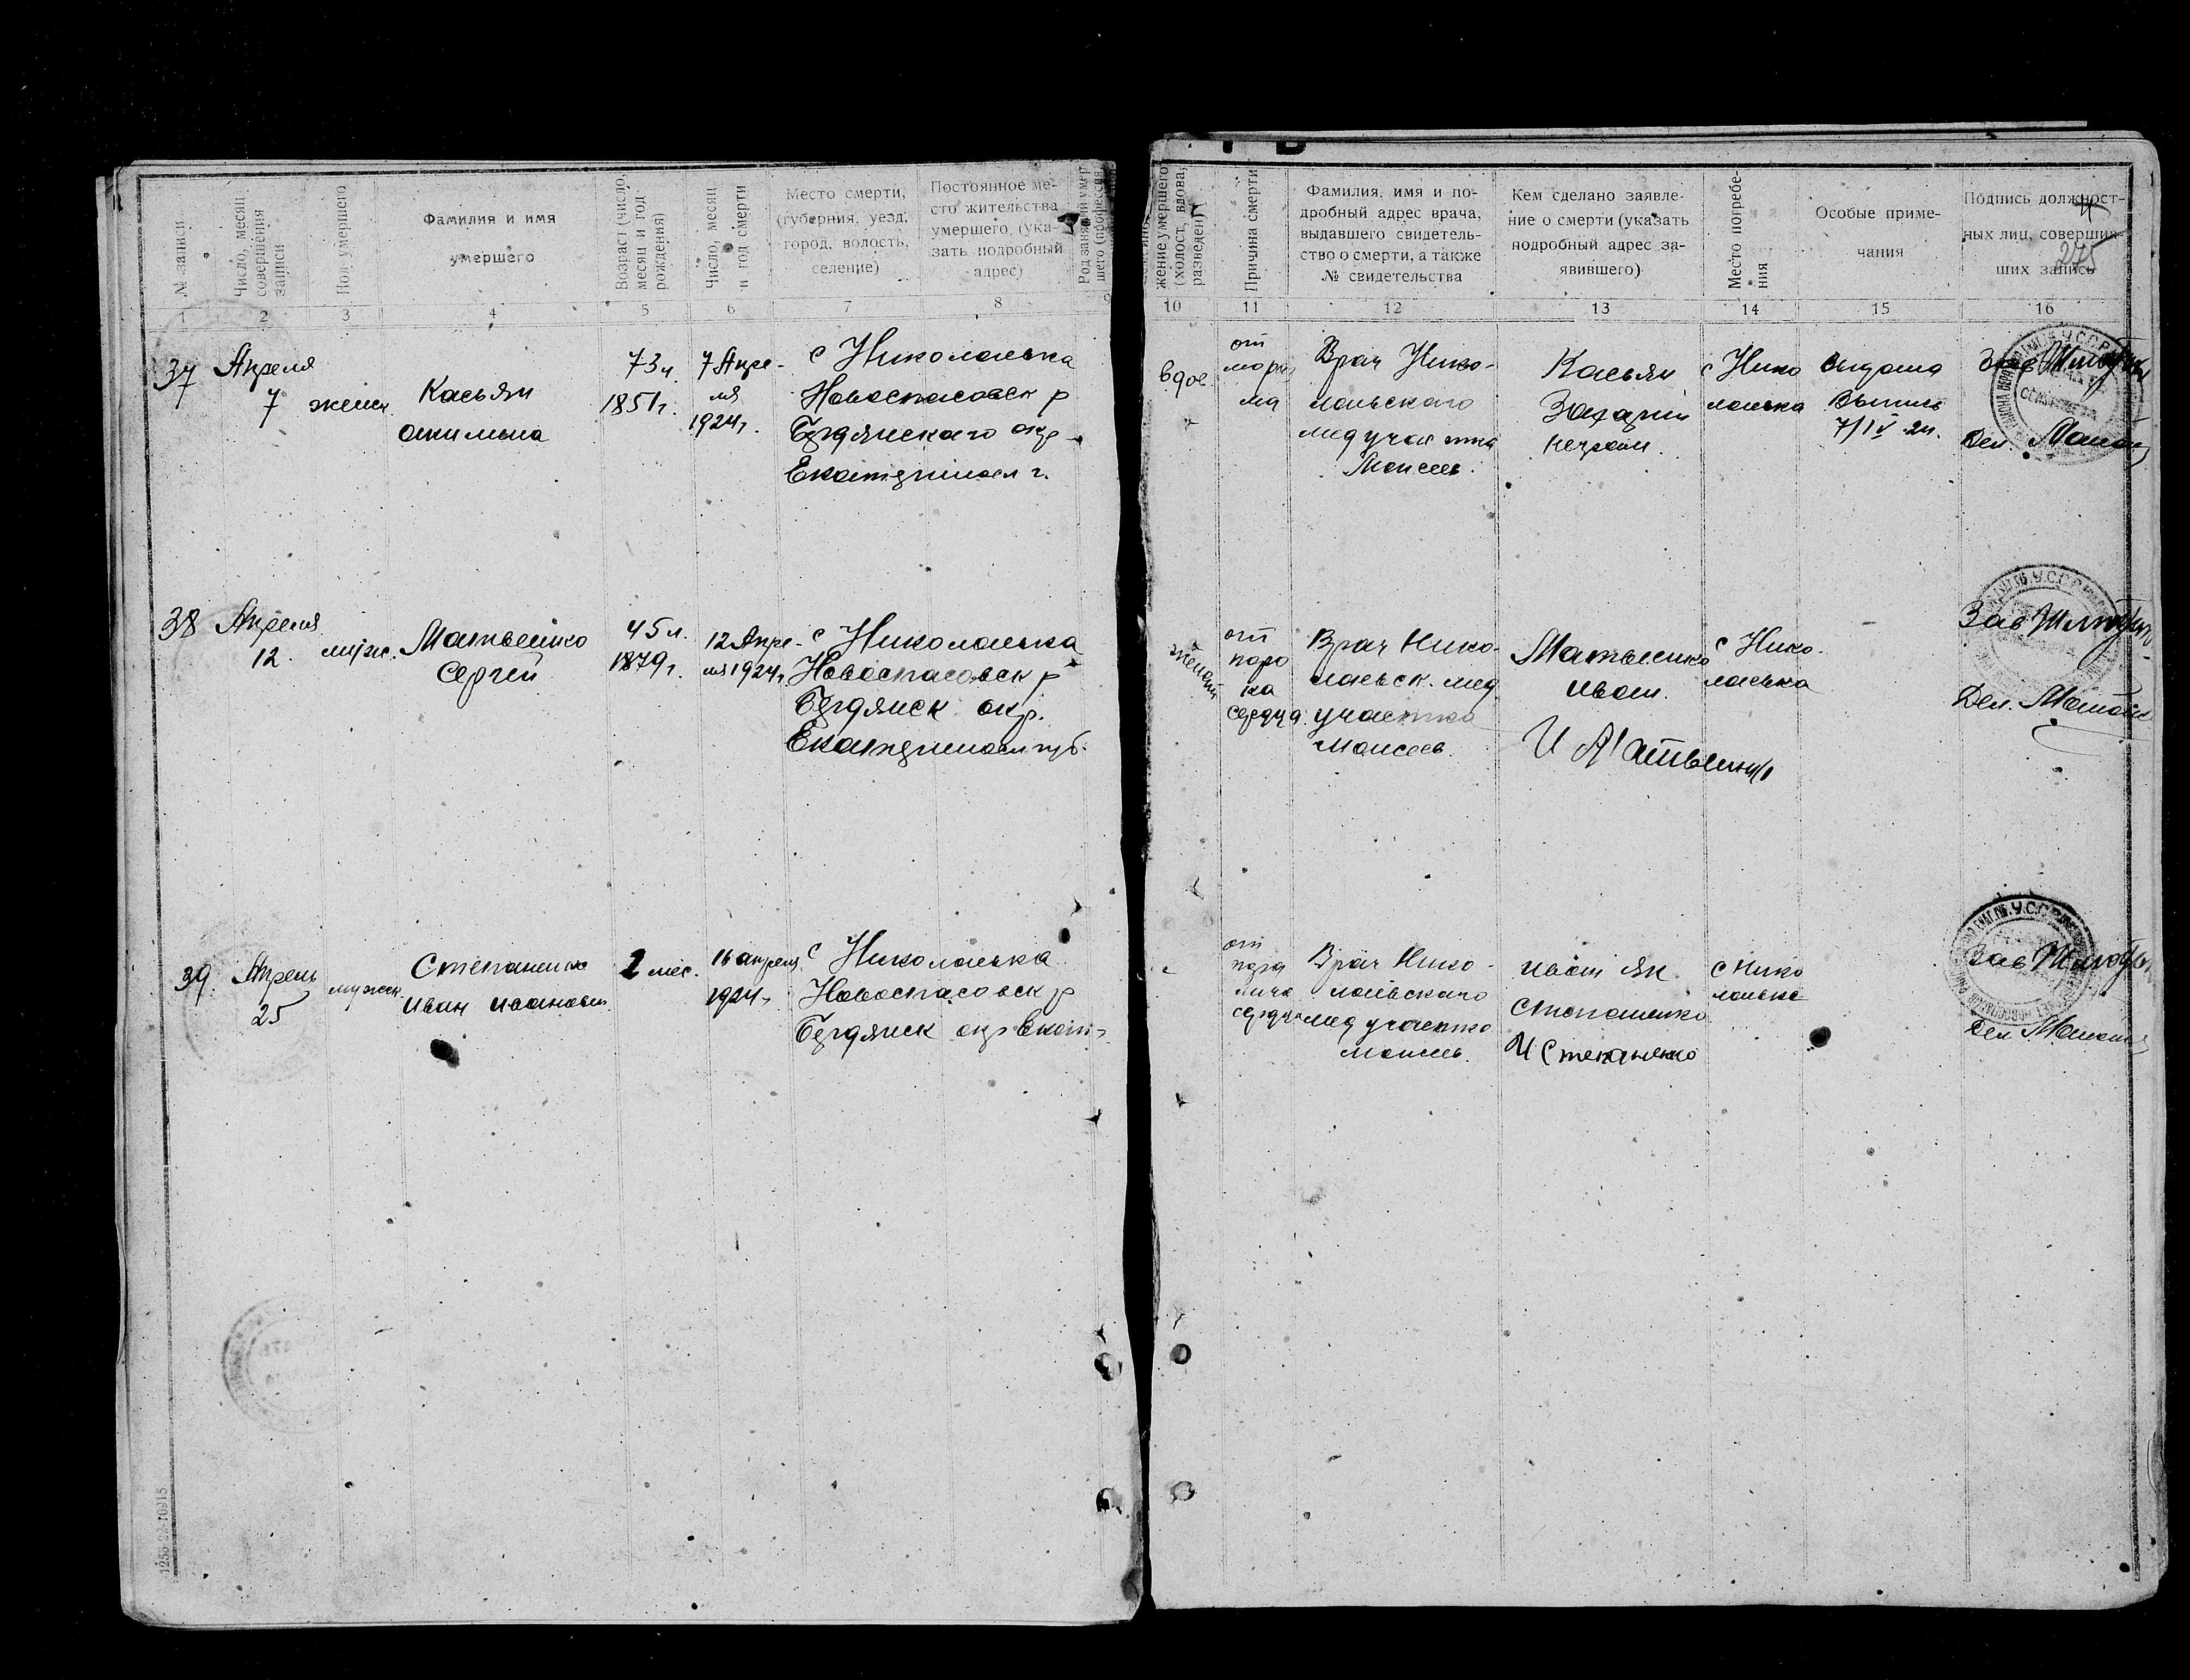 № записи
Число, месяц
совершения
записи
Пол умершего
Фамилия и имя
умершего
Возраст (число,
месяц и год
рождения)
Число, месяц
и год смерти
Место смерти,
(губерния, уезд,
город, волость,
селение)
Постоянное ме-
сто жительства
умершего, (ука-
зать подробный
адрес)
Род занятий умер
шего (профессия,
жение умершего
(холост, вдова,
разведен)
Причина смерти
Фамилия, имя и по-
дробный адрес врача,
выдавшего свидетель-
ство о смерти, а также
№ свидетельства
Кем сделано заявле-
ние о смерти (указать
подробный адрес за-
явившего)
Место погребе-
ния
Особые приме-
чания
Подпись должност-
ных лиц, совершив-
ших запись
275
1 2 3 4 5 6 7 8 9 10 11 12 13 14 15 16
37
Апреля
7
женск.
Касьян
Акимына
73 л.
1851 г.
7 Апре-
ля
1924 г.
с Николаевка
Новоспасовск р
Бердянскаго окр
Екатериносл г.
вдов.
от
Врач Нико-
лаевскаго
мед участка
Моисеев.
Касьян
Захарий
с Нико
лаевка
Выдана
Выпись
7/IV 24.
Зав
Дел.
38
Апреля
12.
мужс.
Матвеинко
Сергей
45 л.
1879 г.
12 Апре-
ля 1924 г.
с Николаевка
Новоспасовск р
Бердянск окр.
Екатериносл губ.
женат
от
поро
ка
сердца
Врач Нико-
лаевск. мед.
участка
Моисеев
Матвеинко
Иван.
И Матвеинко
с Нико-
лаевка
Зав
Дел.
39.
Апрель
25
мужск.
Степаненко
Иван Иванович
2 мес.
16 апреля
1924 г.
с Николаевка
Новоспасовск р
Бердянск окр Екат.
от
пара
лича
сердца
Врач Нико-
лаевскаго
мед участка
Моисеев.
Иван Як
Степаненко
И Степаненко
с Нико
лаевка
Зав
Дел